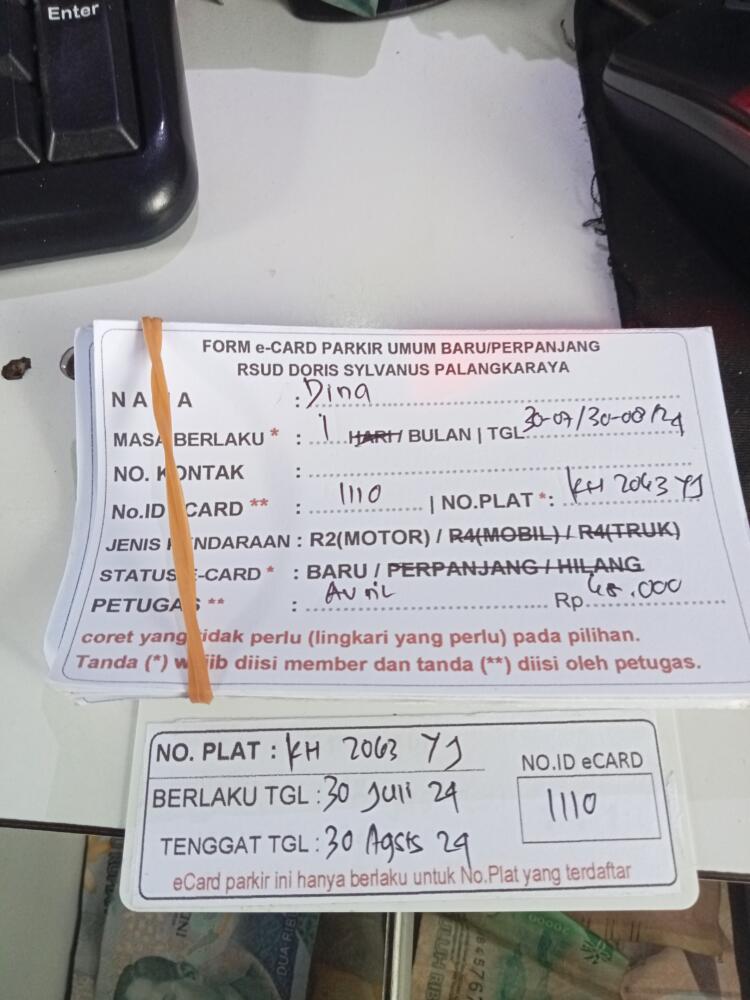 Enter
FORM e-CARD PARKIR UMUM BARU/PERPANJANG
RSUD DORIS SYLVANUS PALANGKARAYA
NAMA : Dina
MASA BERLAKU * : 1 HARI / BULAN | TGL 30-07/30-08/24
NO. KONTAK :
No.ID CARD ** : 1110 | NO.PLAT *: KH 2063 YJ
JENIS KENDARAAN : R2(MOTOR) / R4(MOBIL) / R4(TRUK)
STATUS E-CARD * : BARU / PERPANJANG / HILANG
PETUGAS ** : Avril Rp 48.000
coret yang tidak perlu (lingkari yang perlu) pada pilihan.
Tanda (*) wajib diisi member dan tanda (**) diisi oleh petugas.
NO. PLAT : KH 2063 YJ
NO.ID eCARD
BERLAKU TGL : 30 Juli 24
1110
TENGGAT TGL : 30 Agsts 24
eCard parkir ini hanya berlaku untuk No.Plat yang terdaftar
DUA RIB
20000